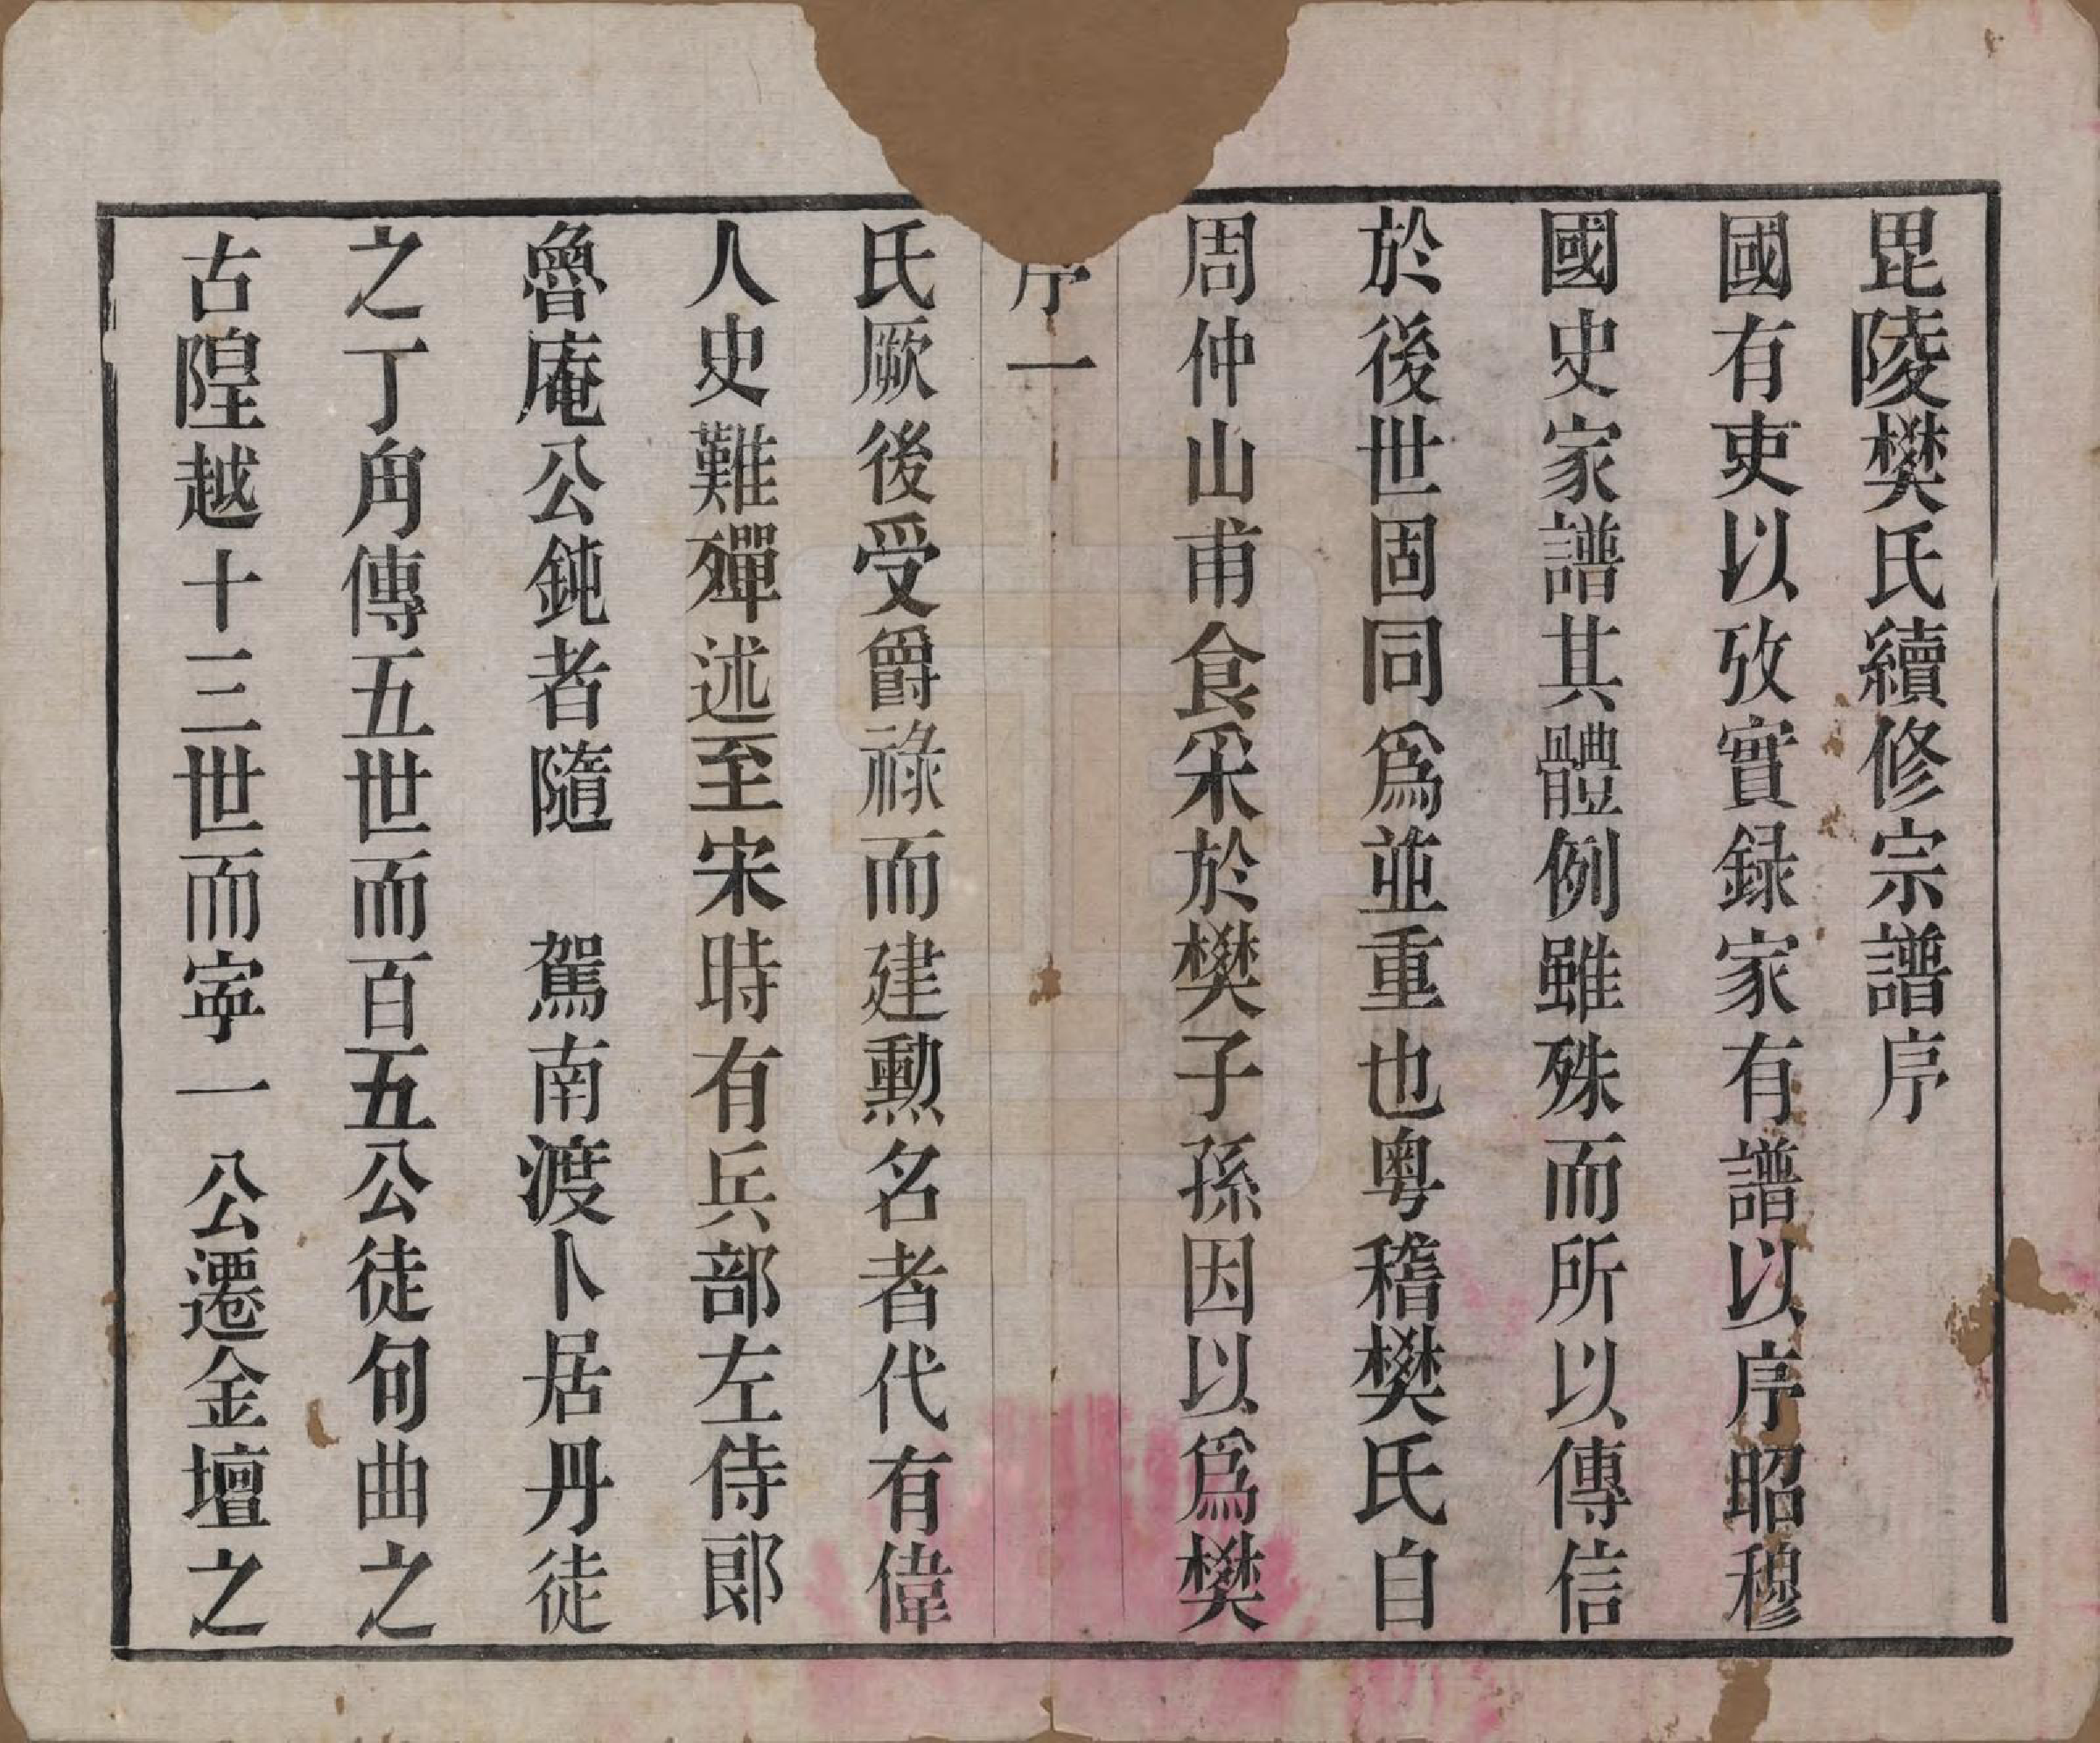 毘陵樊氏續修宗譜序
國有吏以攷實録家有譜以序昭穆
國史家譜其體例雖殊而所以傳信
於後世固同爲並重也粤稽樊氏自
周仲山甫食采於樊子孫因以爲樊
序一
氏厥後受爵祿而建勲名者代有偉
人史難殫述至宋時有兵部左侍郎
魯庵公鈍者隨　駕南渡卜居丹徒
之丁角傳五世而百五公徒句曲之
古隍越十三世而寜一公遷金壇之